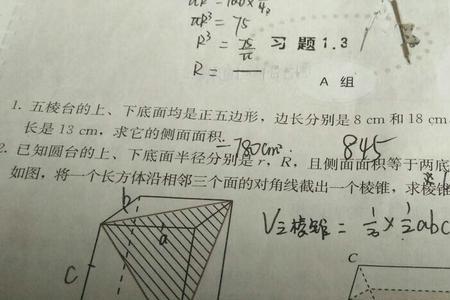 πR³ = 75
R³ = 75/π
R =
习题1.3
A 组
1. 五棱台的上、下底面均是正五边形，边长分别是 8 cm 和 18 cm
长是 13 cm，求它的侧面面积. = 780cm² 845
2. 已知圆台的上、下底面半径分别是 r，R，且侧面面积等于两底
如图，将一个长方体沿相邻三个面的对角线截出一个棱锥，求棱锥
b
a
V三棱锥 = 1/3 × 1/2 abc
c
C